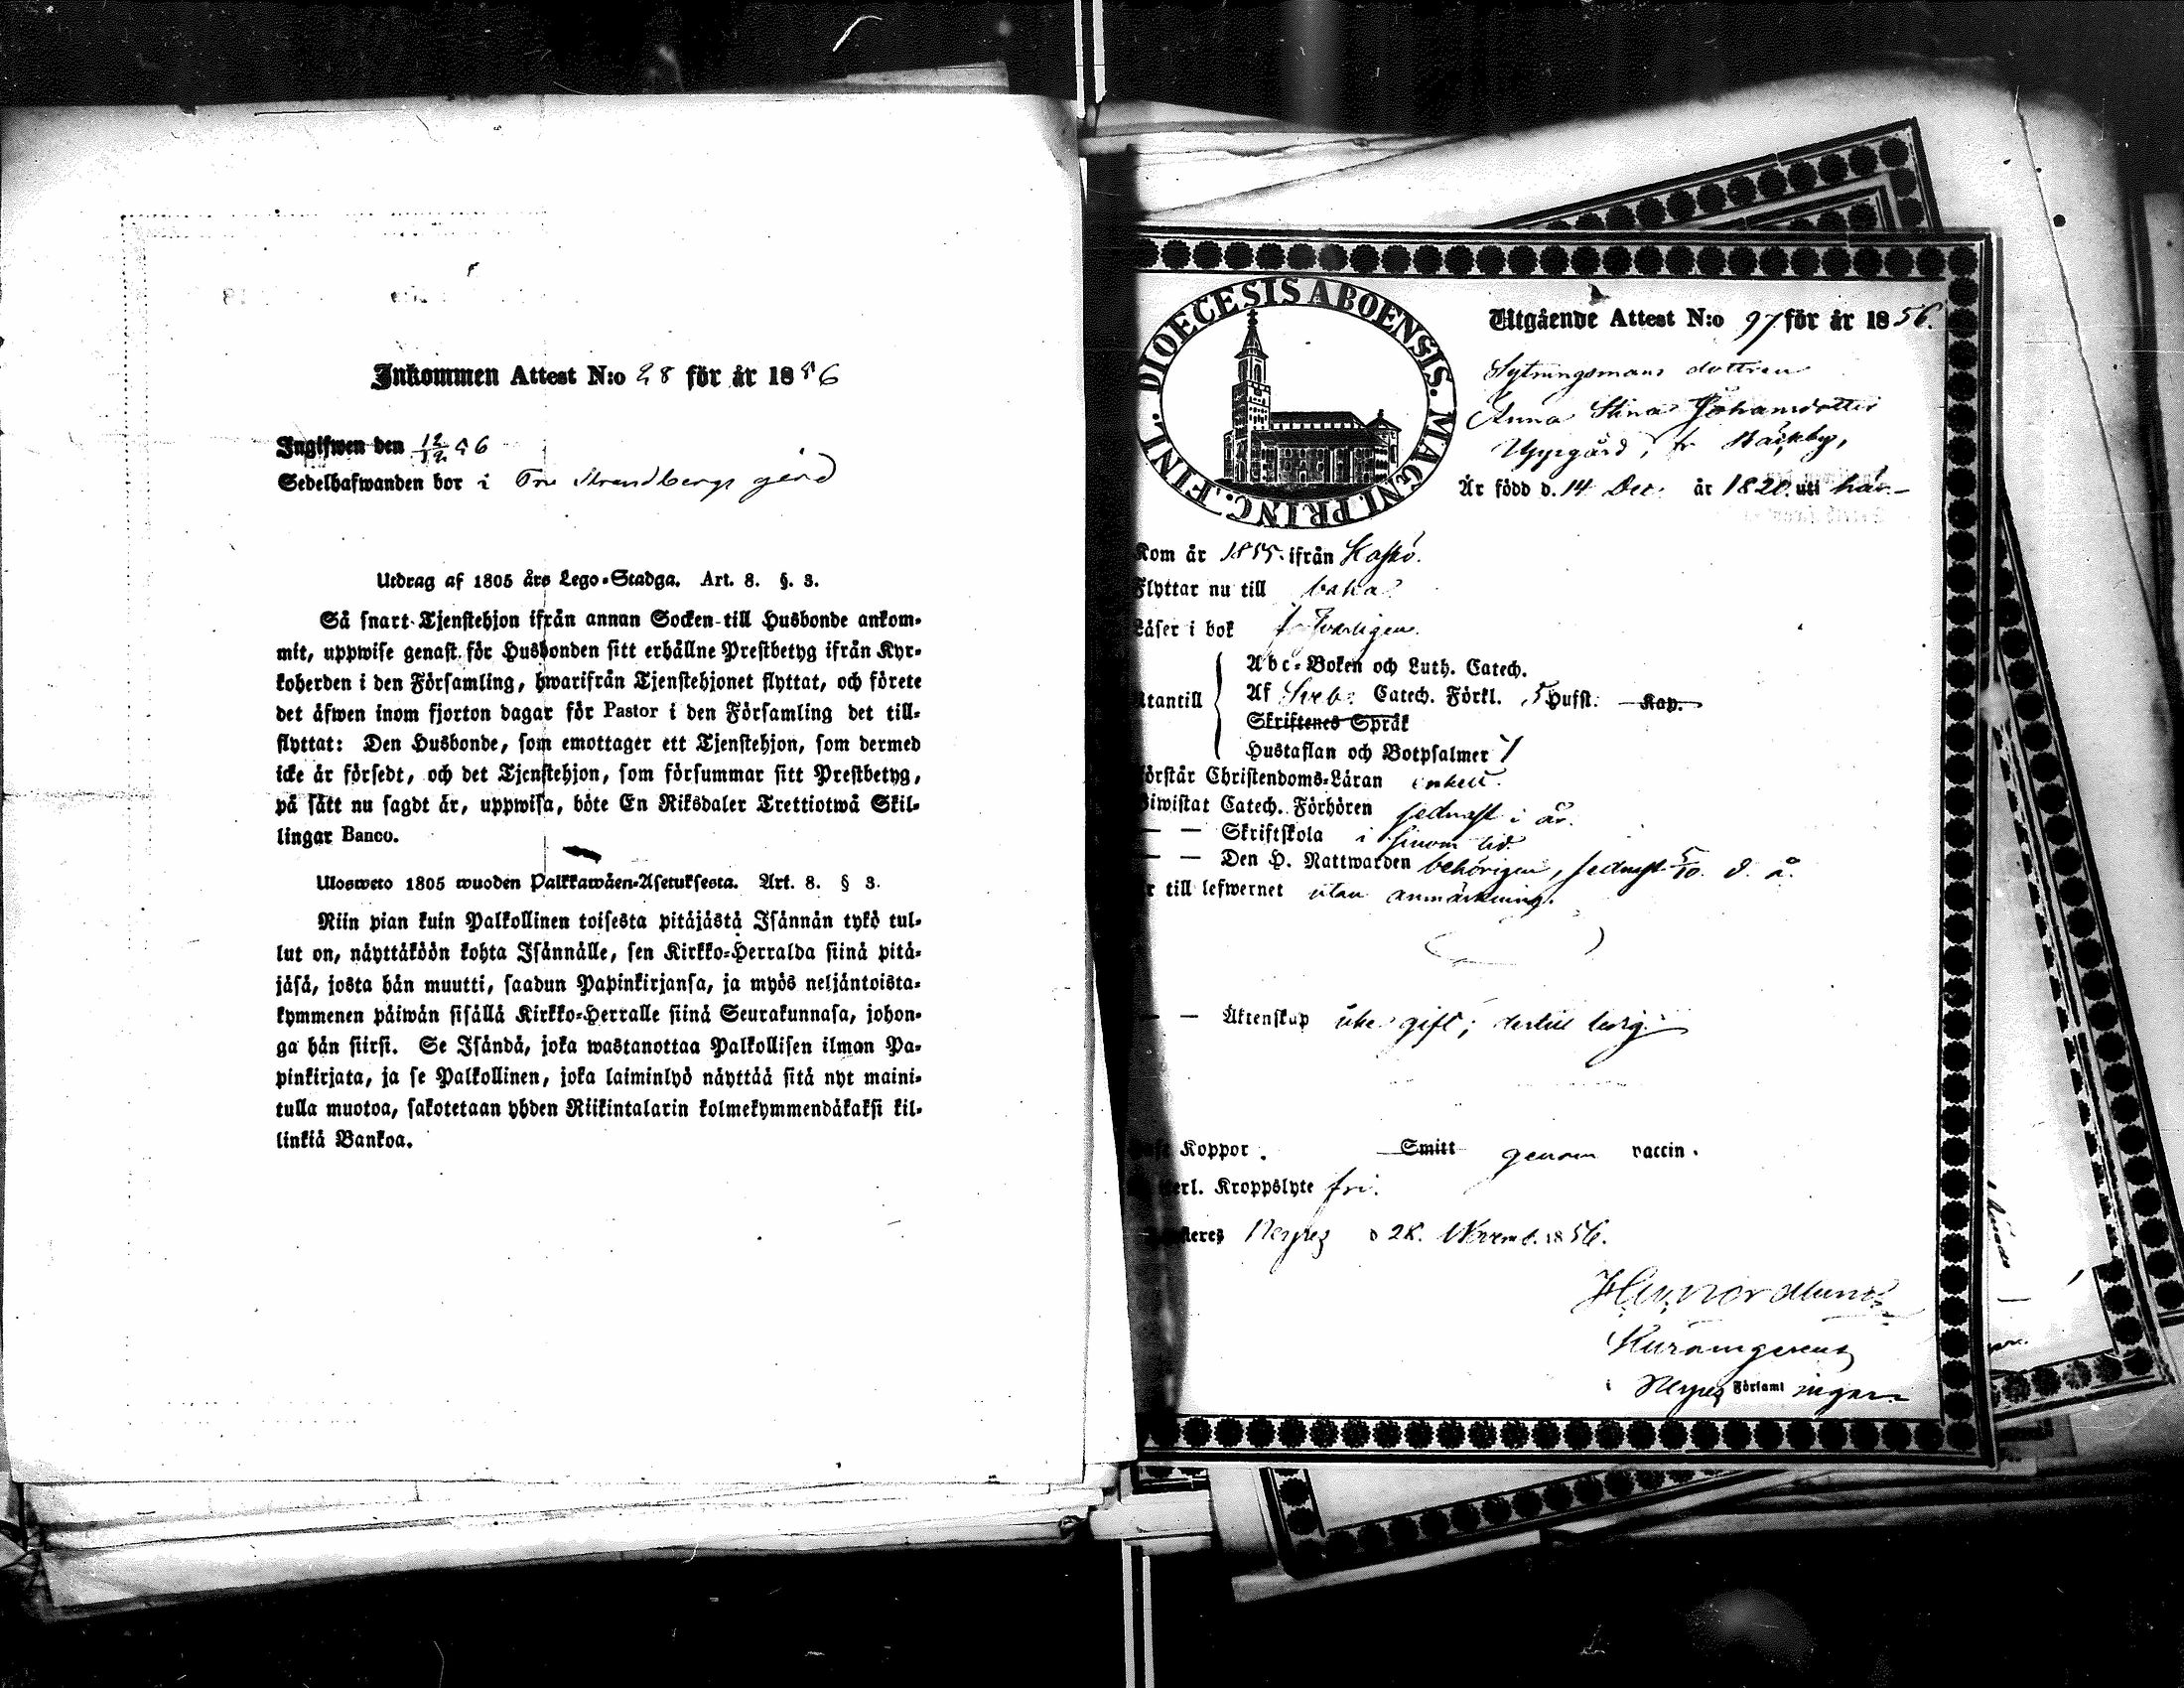 Inkommen Attest N:o 28 för år 1856
Ingifwen den 12/12 56
Sedelhafwanden bor i Fru Strandbergs gård
Utdrag af 1805 års Lego-Stadga. Art. 8. §. 3.
Så snart Tjenstehjon ifrån annan Socken till Husbonde ankom-
mit, uppwise genast för Husbonden sitt erhållne Prestbetyg ifrån Kyr-
koherden i den Församling, hwarifrån Tjenstehjonet flyttat, och förete
det äfwen inom fjorton dagar för Pastor i den Församling det till-
flyttat: Den Husbonde, som emottager ett Tjenstehjon, som dermed
icke är försedt, och det Tjenstehjon, som försummar sitt Prestbetyg,
på sätt nu sagdt är, uppwisa, böte En Riksdaler Trettiotwå Skil-
lingar Banco.
Ulosweto 1805 wuoden Palkkawäen-Asetuksesta. Art. 8. § 3.
Niin pian kuin Palkollinen toisesta pitäjästä Isännän tykö tul-
lut on, näyttäköön kohta Isännälle, sen Kirkko-Herralda siinä pitä-
jäsä, josta hän muutti, saadun Papinkirjansa, ja myös neljäntoista-
kymmenen päiwän sisällä Kirkko-Herralle siinä Seurakunnasa, johon-
ga hän siirsi. Se Isändä, joka wastanottaa Palkollisen ilman Pa-
pinkirjata, ja se Palkollinen, joka laiminlyö näyttää sitä nyt maini-
tulla muotoa, sakotetaan yhden Riikintalarin kolmekymmendäkaksi kil-
linkiä Bankoa.
DIOECESIS ABOENSIS. MAGNI PRINC. FINL.
Utgående Attest N:o 97 för år 1856.
Sytningsmans dottren
Anna Stina Johansdotter
Uppgård, fr Bäckby,
Är född d. 14 Dec. år 1820 uti här
Kom år 1855. ifrån Kaskö.
Flyttar nu till baka
Läser i bok försvarligen.
Utantill
Abc-Boken och Luth. Catech.
Af Sveb: Catech. Förkl. 5 Hufst. Kap.
Skriftenes Språk
Hustaflan och Botpsalmer 1
Förstår Christendoms-Läran enkelt.
Biwistat Catech. Förhören sednast i år.
— — Skriftskola i sinom tid
— — Den H. Nattwarden behörigen, sednast 5/10 d. å.
Är till lefwernet utan anmärkning.
— — Äktenskap icke gift; dertill ledig.
Koppor. Smitt genom vaccin.
Kroppslyte fri.
Nerpes d 28. Novemb. 1856.
H. W. Nordlund
i Nerpes Församlingar